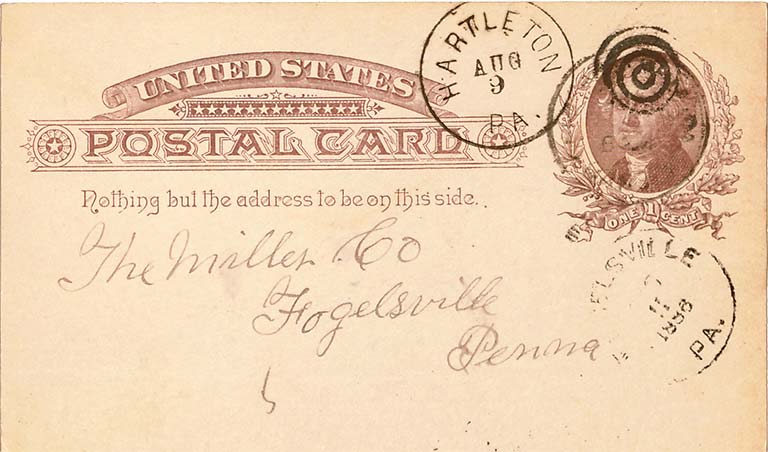 UNITED STATES
POSTAL CARD
Nothing but the address to be on this side.
HARTLETON
AUG
9
PA.
ONE 1 CENT
The Miller Co
Fogelsville
Penna
ELSVILLE
11
1886
PA.